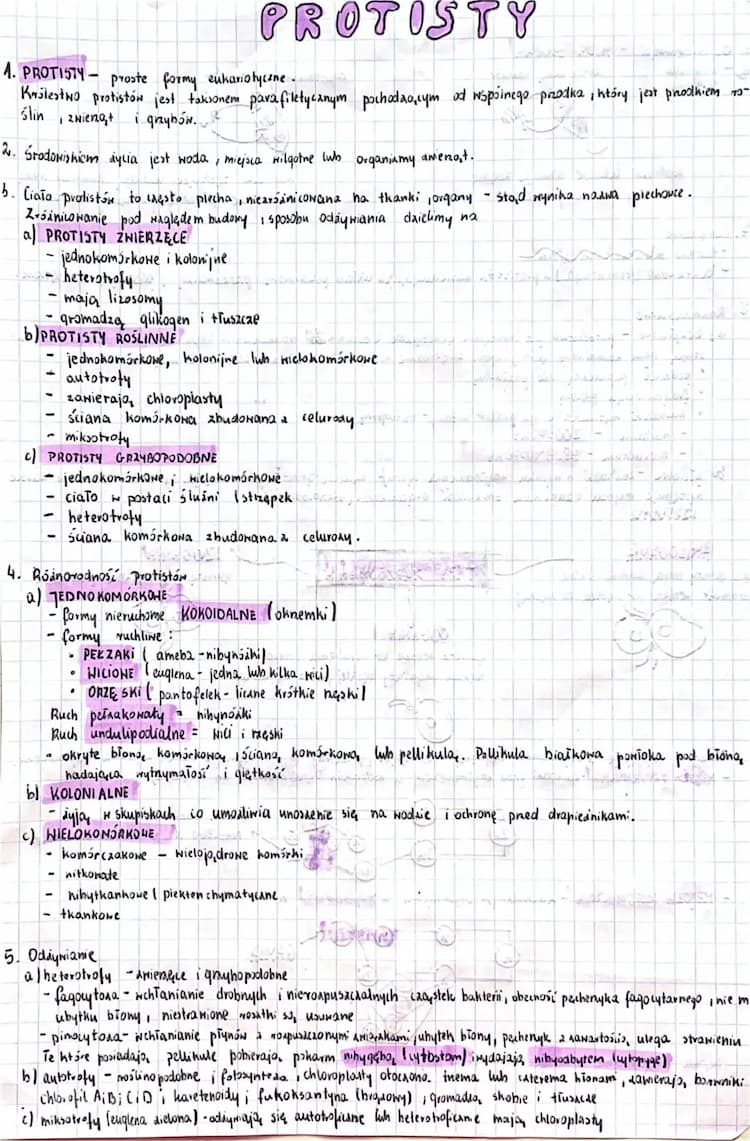 PROTISTY
1. PROTISTY – proste formy eukariotyczne.
Królestwo protistów jest taksonem parafiletycznym pochodzącym od wspólnego przodka, który jest przodkiem ro-
ślin, zwierząt i grzybów.
2. Środowiskiem życia jest woda, miejsca wilgotne lub organizmy zwierząt.
3. Ciało protistów to często plecha, niezróżnicowana na tkanki, organy – stąd wynika nazwa plechowce.
Zróżnicowanie pod względem budowy i sposobu odżywiania dzielimy na
a) PROTISTY ZWIERZĘCE
- jednokomórkowe i kolonijne
- heterotrofy
- mają lizosomy
- gromadzą glikogen i tłuszcze
b) PROTISTY ROŚLINNE
- jednokomórkowe, kolonijne lub wielokomórkowe
- autotrofy
- zawierają chloroplasty
- ściana komórkowa zbudowana z celurozy
- miksotrofy
c) PROTISTY GRZYBOPODOBNE
- jednokomórkowe i wielokomórkowe
- ciało w postaci śluźni (strzępek
- heterotrofy
- ściana komórkowa zbudowana z celurozy.
4. Różnorodność protistów
a) JEDNOKOMÓRKOWE
- formy nieruchome KOKOIDALNE (okrzemki)
- formy ruchliwe:
• PEŁZAKI (ameba - nibynóżki)
• WICIONE (euglena - jedna lub kilka wici)
• ORZĘSKI (pantofelek - liczne krótkie rzęski)
Ruch pełzakowaty = nibynóżki
Ruch undulipodialne = wici i rzęski
• okryte błoną komórkową, ścianą komórkową lub pellikulą. Pellikula białkowa powłoka pod błoną,
nadająca wytrzymałość i giętkość
b) KOLONIALNE
- żyją w skupiskach co umożliwia unoszenie się na wodzie i ochronę przed drapieżnikami.
c) WIELOKOMÓRKOWE
- komórczakowe – wielojądrowe komórki
- nitkowate
- nibytkankowe (plektenchymatyczne
- tkankowe
5. Odżywianie
a) heterotrofy - zwierzęce i grzybopodobne
- fagocytoza - wchłanianie drobnych i nierozpuszczalnych cząstek bakterii, obecność pęcherzyka fagocytarnego, nie m
ubytku błony, niestrawione resztki są usuwane
- pinocytoza - wchłanianie płynów z rozpuszczonymi związkami, ubytek błony, pęcherzyk z zawartością ulega strawieniu
Te które posiadają pellikulę pobierają pokarm nibygębą (cytostom) i wydalają nibyodbytem (cytopyge)
b) autotrofy - roślinopodobne, fotosynteza, chloroplasty otoczone trzema lub czterema błonami, zawierają barwniki
chlorofil A i B i C i D i karotenoidy i fukoksantyna (brązowy), gromadzą skrobię i tłuszcze
c) miksotrofy (euglena zielona) - odżywiają się autotroficznie lub heterotroficznie mają chloroplasty